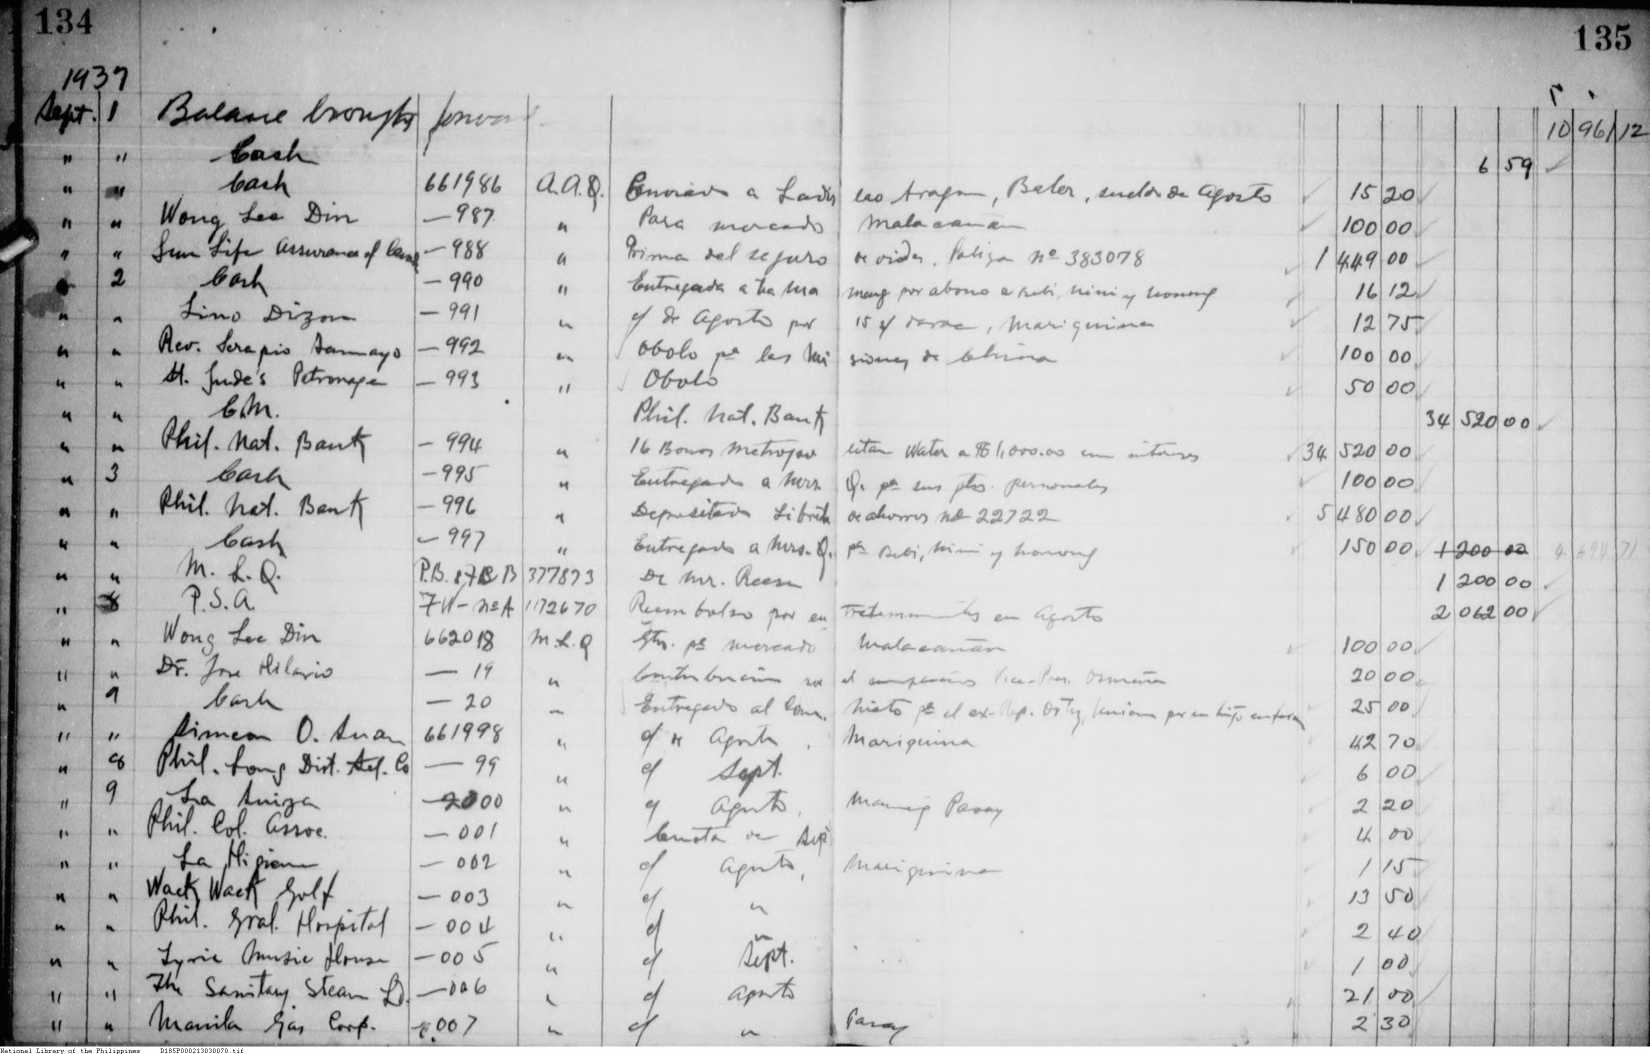 134
135
1937
Sept. 1 Balance brought forward 10 961 12
" " Cash 6 59
" " Cash 661986 A.A.Q. Enviado a Ladis lao Aragon, Baler, sueldo de Agosto 15 20
" " Wong Lee Din — 987 " Para mercado Malacañan 100 00
" " Sun Life Assurance of — 988 " Prima del seguro de vida. Poliza nº 383078 1 449 00
" 2 Cash — 990 " Entregada a por abono a Bebi, Nini y Nonong 16 12
" " Lino Dizon — 991 " c/ de Agosto por 15 Mariquina 12 75
" " Rev. Serapio Tamayo — 992 " Obolo pª las Mi siones de China 100 00
" " St. Jude's Patronage — 993 " Obolo 50 00
" " C.M. Phil. Nat. Bank 34 520 00
" " Phil. Nat. Bank — 994 " 16 Bonos Metropo litan Water a ₱1,000.00 con intereses 34 520 00
" 3 Cash — 995 " Entregado a Mrs. Q. pª sus gtos. personales 100 00
" " Phil. Nat. Bank — 996 " Depositado Libreta de ahorros nº 22722 5 480 00
" " Cash — 997 " Entregado a Mrs. Q. pª Bebi, Nini y Nonong 150 00 1 200 00
" " M. L. Q. P.B. 377873 De Mr. 1 200 00
" 8 P.S.A. 7 W- nº A 1172670 Reembolso por en tretenimientos en Agosto 2 062 00
" " Wong Lee Din 662018 M.L.Q Gto. pª mercado Malacañan 100 00
" " Dr. Jose Hilario — 19 " Contribucion Vice-Pres. Osmeña 20 00
" 9 Cash — 20 " Entregado al Nieto pª el ex-Rep. por su hijo 25 00
" " Simeon O. 661998 " c/ Agosto, Mariquina 42 70
" 8 Phil. Long Dist. Tel. Co — 99 " c/ Sept. 6 00
" 9 La Suiza — 2000 " c/ Agosto, Pasay 2 20
" " Phil. Col. Assoc. — 001 " Cuota de Sept 4 00
" " La Higiene — 002 " c/ Agosto, Mariquina 1 15
" " Wack Wack Golf — 003 " c/ " 13 50
" " Phil. Gral. Hospital — 004 " c/ " 2 40
" " Lyric Music House — 005 " c/ Sept. 1 00
" " The Sanitary Steam — 006 " c/ Agosto 21 00
" " Manila Gas Corp. 007 " c/ " Pasay 2 30
National Library of the Philippines D185P000213030070.tif